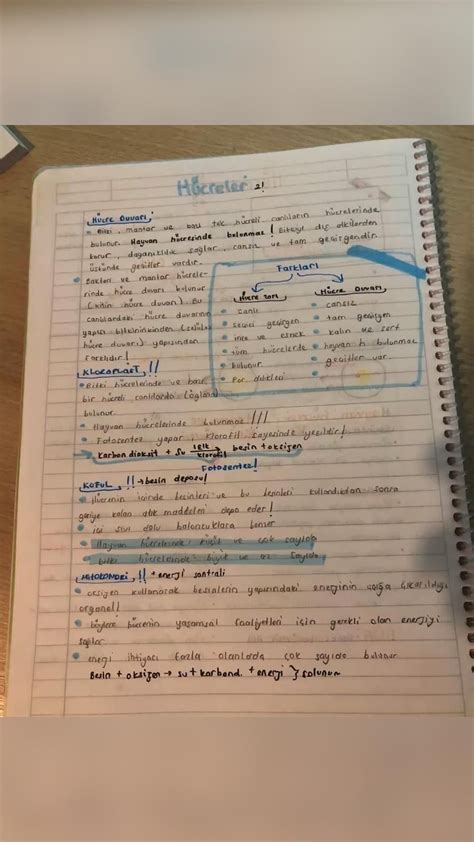 Hücreler 2!
Hücre Duvarı
Bitki, mantar ve bazı tek hücreli canlıların hücrelerinde
bulunur. Hayvan hücresinde bulunmaz! Bitkiyi dış etkilerden
korur, dayanıklılık sağlar, cansız ve tam geçirgendir
üstünde geçitler vardır.
Bakteri ve mantar hücrele-
rinde hücre duvarı bulunur
(kitin hücre duvarı) Bu
canlılardaki hücre duvarının
yapısı bitkininkinden (selüloz
hücre duvarı) yapısından
farklıdır!
Farkları
Hücre zarı
canlı
seçici geçirgen
ince ve esnek
tüm hücrelerde
bulunur
Por delikleri
Hücre Duvarı
cansız
tam geçirgen
kalın ve sert
hayvan h bulunmaz
geçitler var.
KLOROPLAST!!
Bitki hücrelerinde ve bazı
bir hücreli canlılarda (öglena)
bulunur.
Hayvan hücrelerinde bulunmaz!!!
Fotosentez yapar, klorofil sayesinde yeşildir!
Karbondioksit + su ışık klorofil besin + oksijen
Fotosentez!
KOFUL!! → besin deposu!
Hücrenin içinde besinleri ve bu besinleri kullandıktan sonra
geriye kalan atık maddeleri depo eder!
içi sıvı dolu baloncuklara benzer
Hayvan hücrelerinde: küçük ve çok sayıda
bitki hücrelerinde: büyük ve az sayıda
MİTOKONDRİ!! → enerji santrali
oksijen kullanarak besinlerin yapısındaki enerjinin açığa çıkarıldığı
organel!
böylece hücrenin yaşamsal faaliyetleri için gerekli olan enerjiyi
sağlar
enerji ihtiyacı fazla olanlarda çok sayıda bulunur
Besin + oksijen → su + karbond. + enerji } solunum